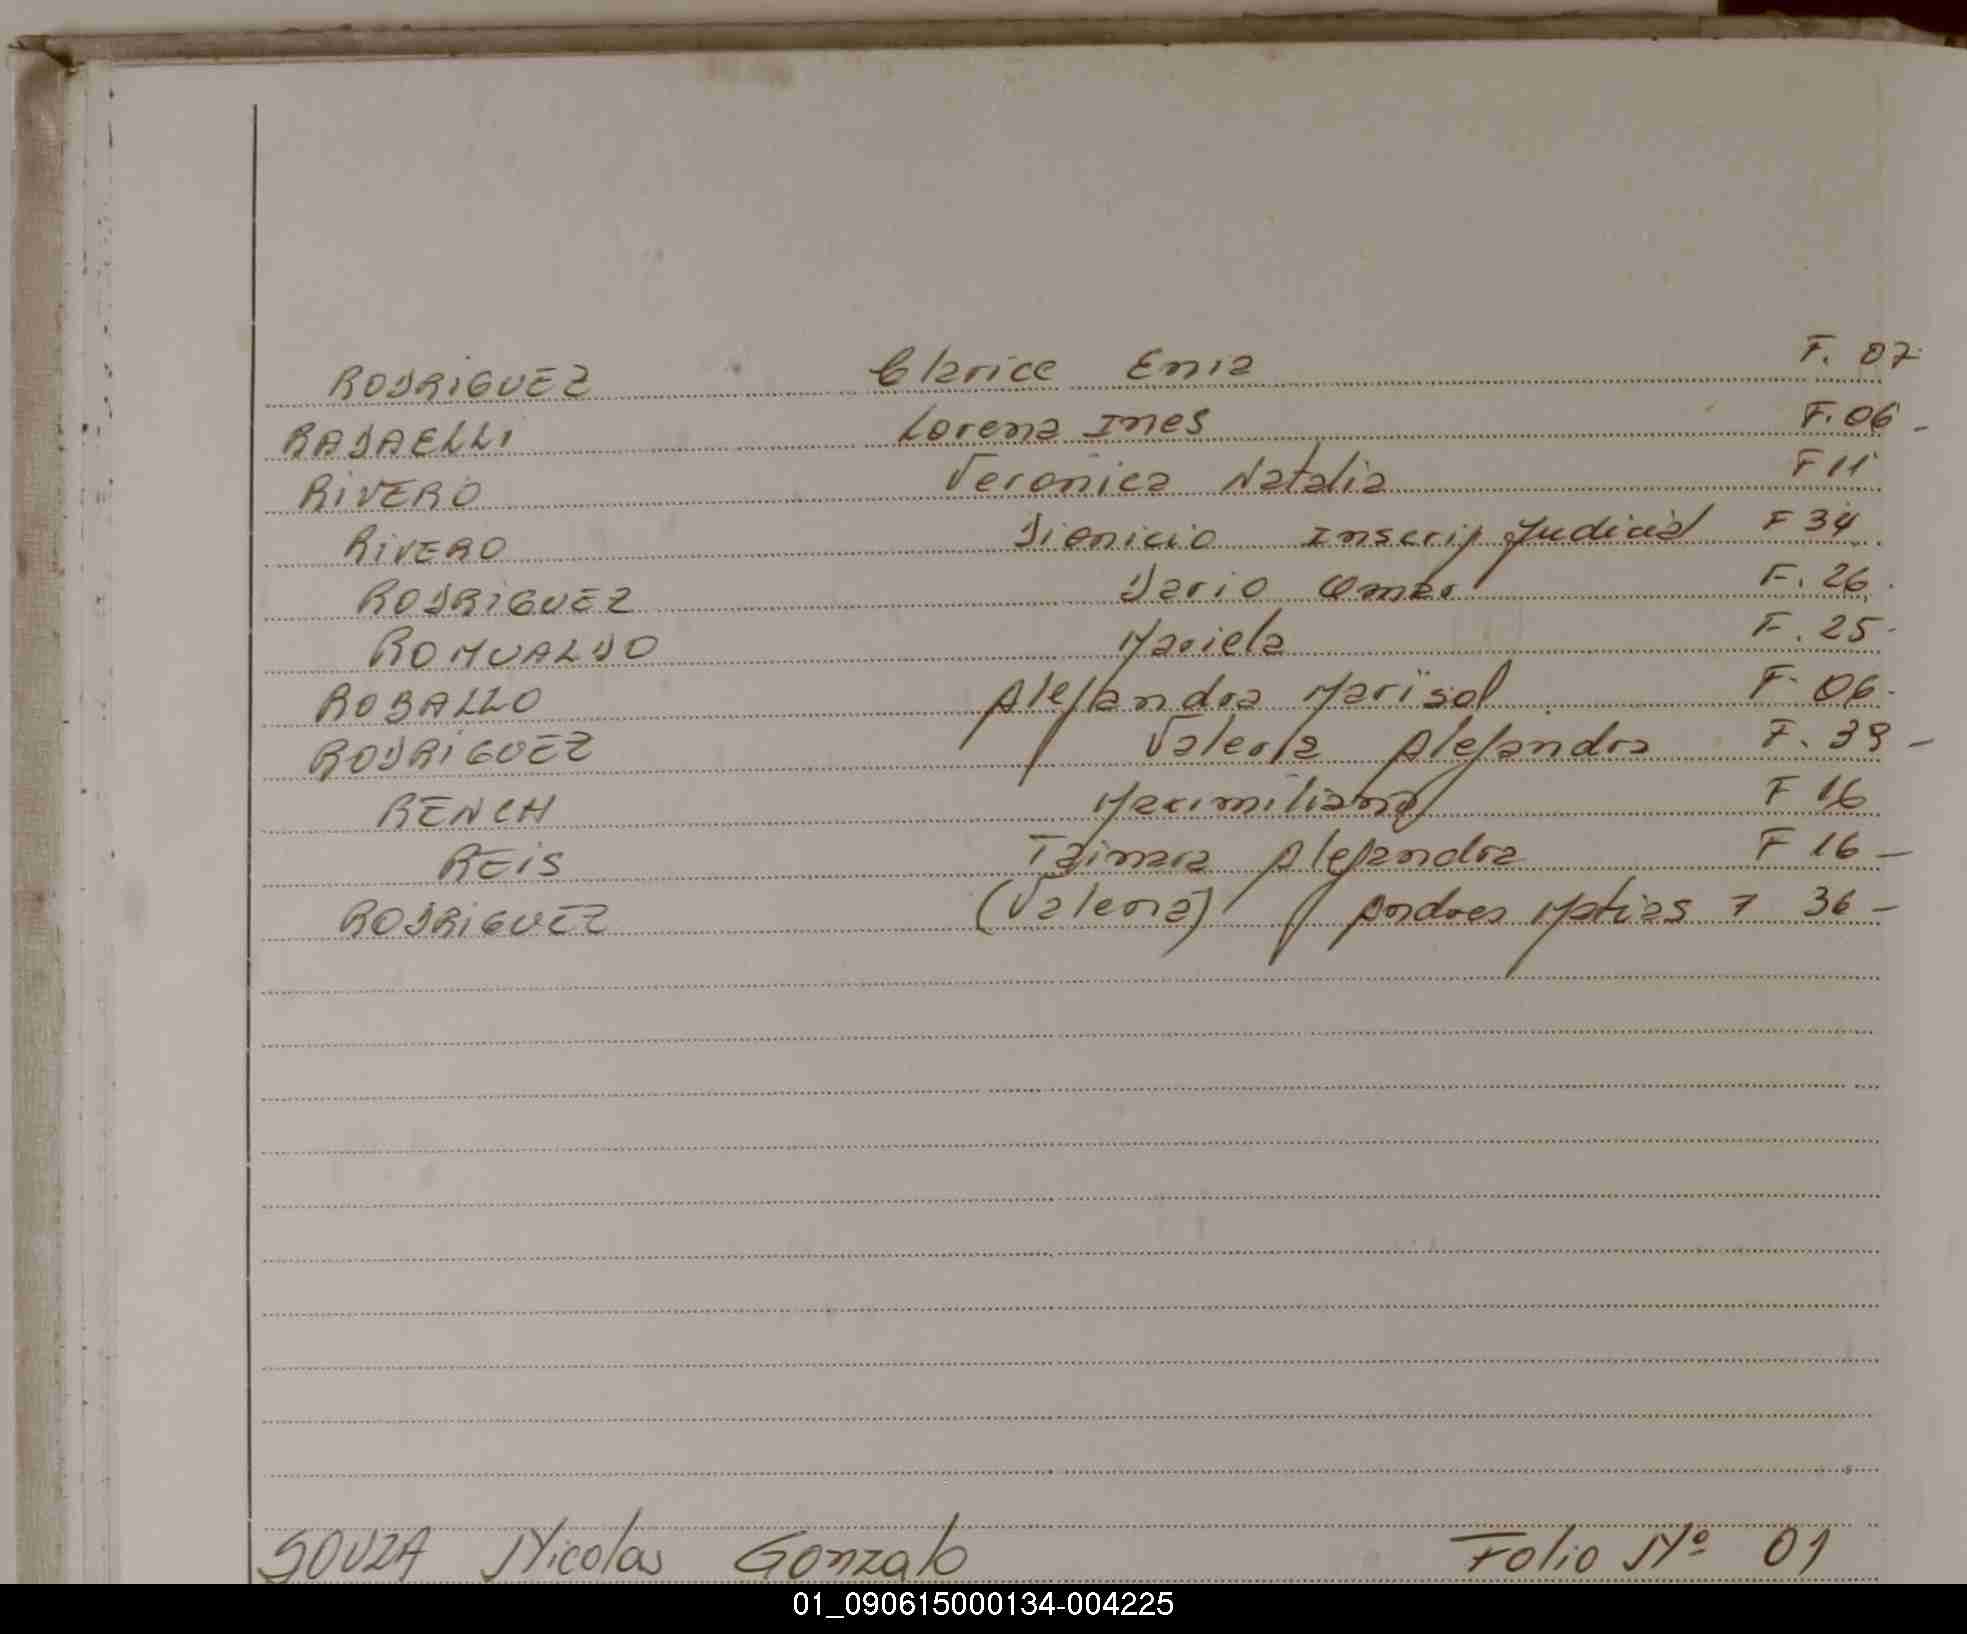 RODRIGUEZ Clarice Enia F. 07
RADAELLI Lorena Ines F. 06 -
RIVERO Veronica Natalia F 11
RIVERO Dionicio Inscrip Judicial F 34
RODRIGUEZ Dario Omar F. 26.
ROMUALDO Mariela F. 25-
ROBALLO Alejandra Marisol F. 06-
RODRIGUEZ Valeria Alejandra F. 39 -
RENCH Maximiliano F 16
REIS Tainara Alejandra F 16 -
RODRIGUEZ (Valeria) Andres Matias F 36 -
SOUZA Nicolas Gonzalo Folio Nº 01
01_090615000134-004225